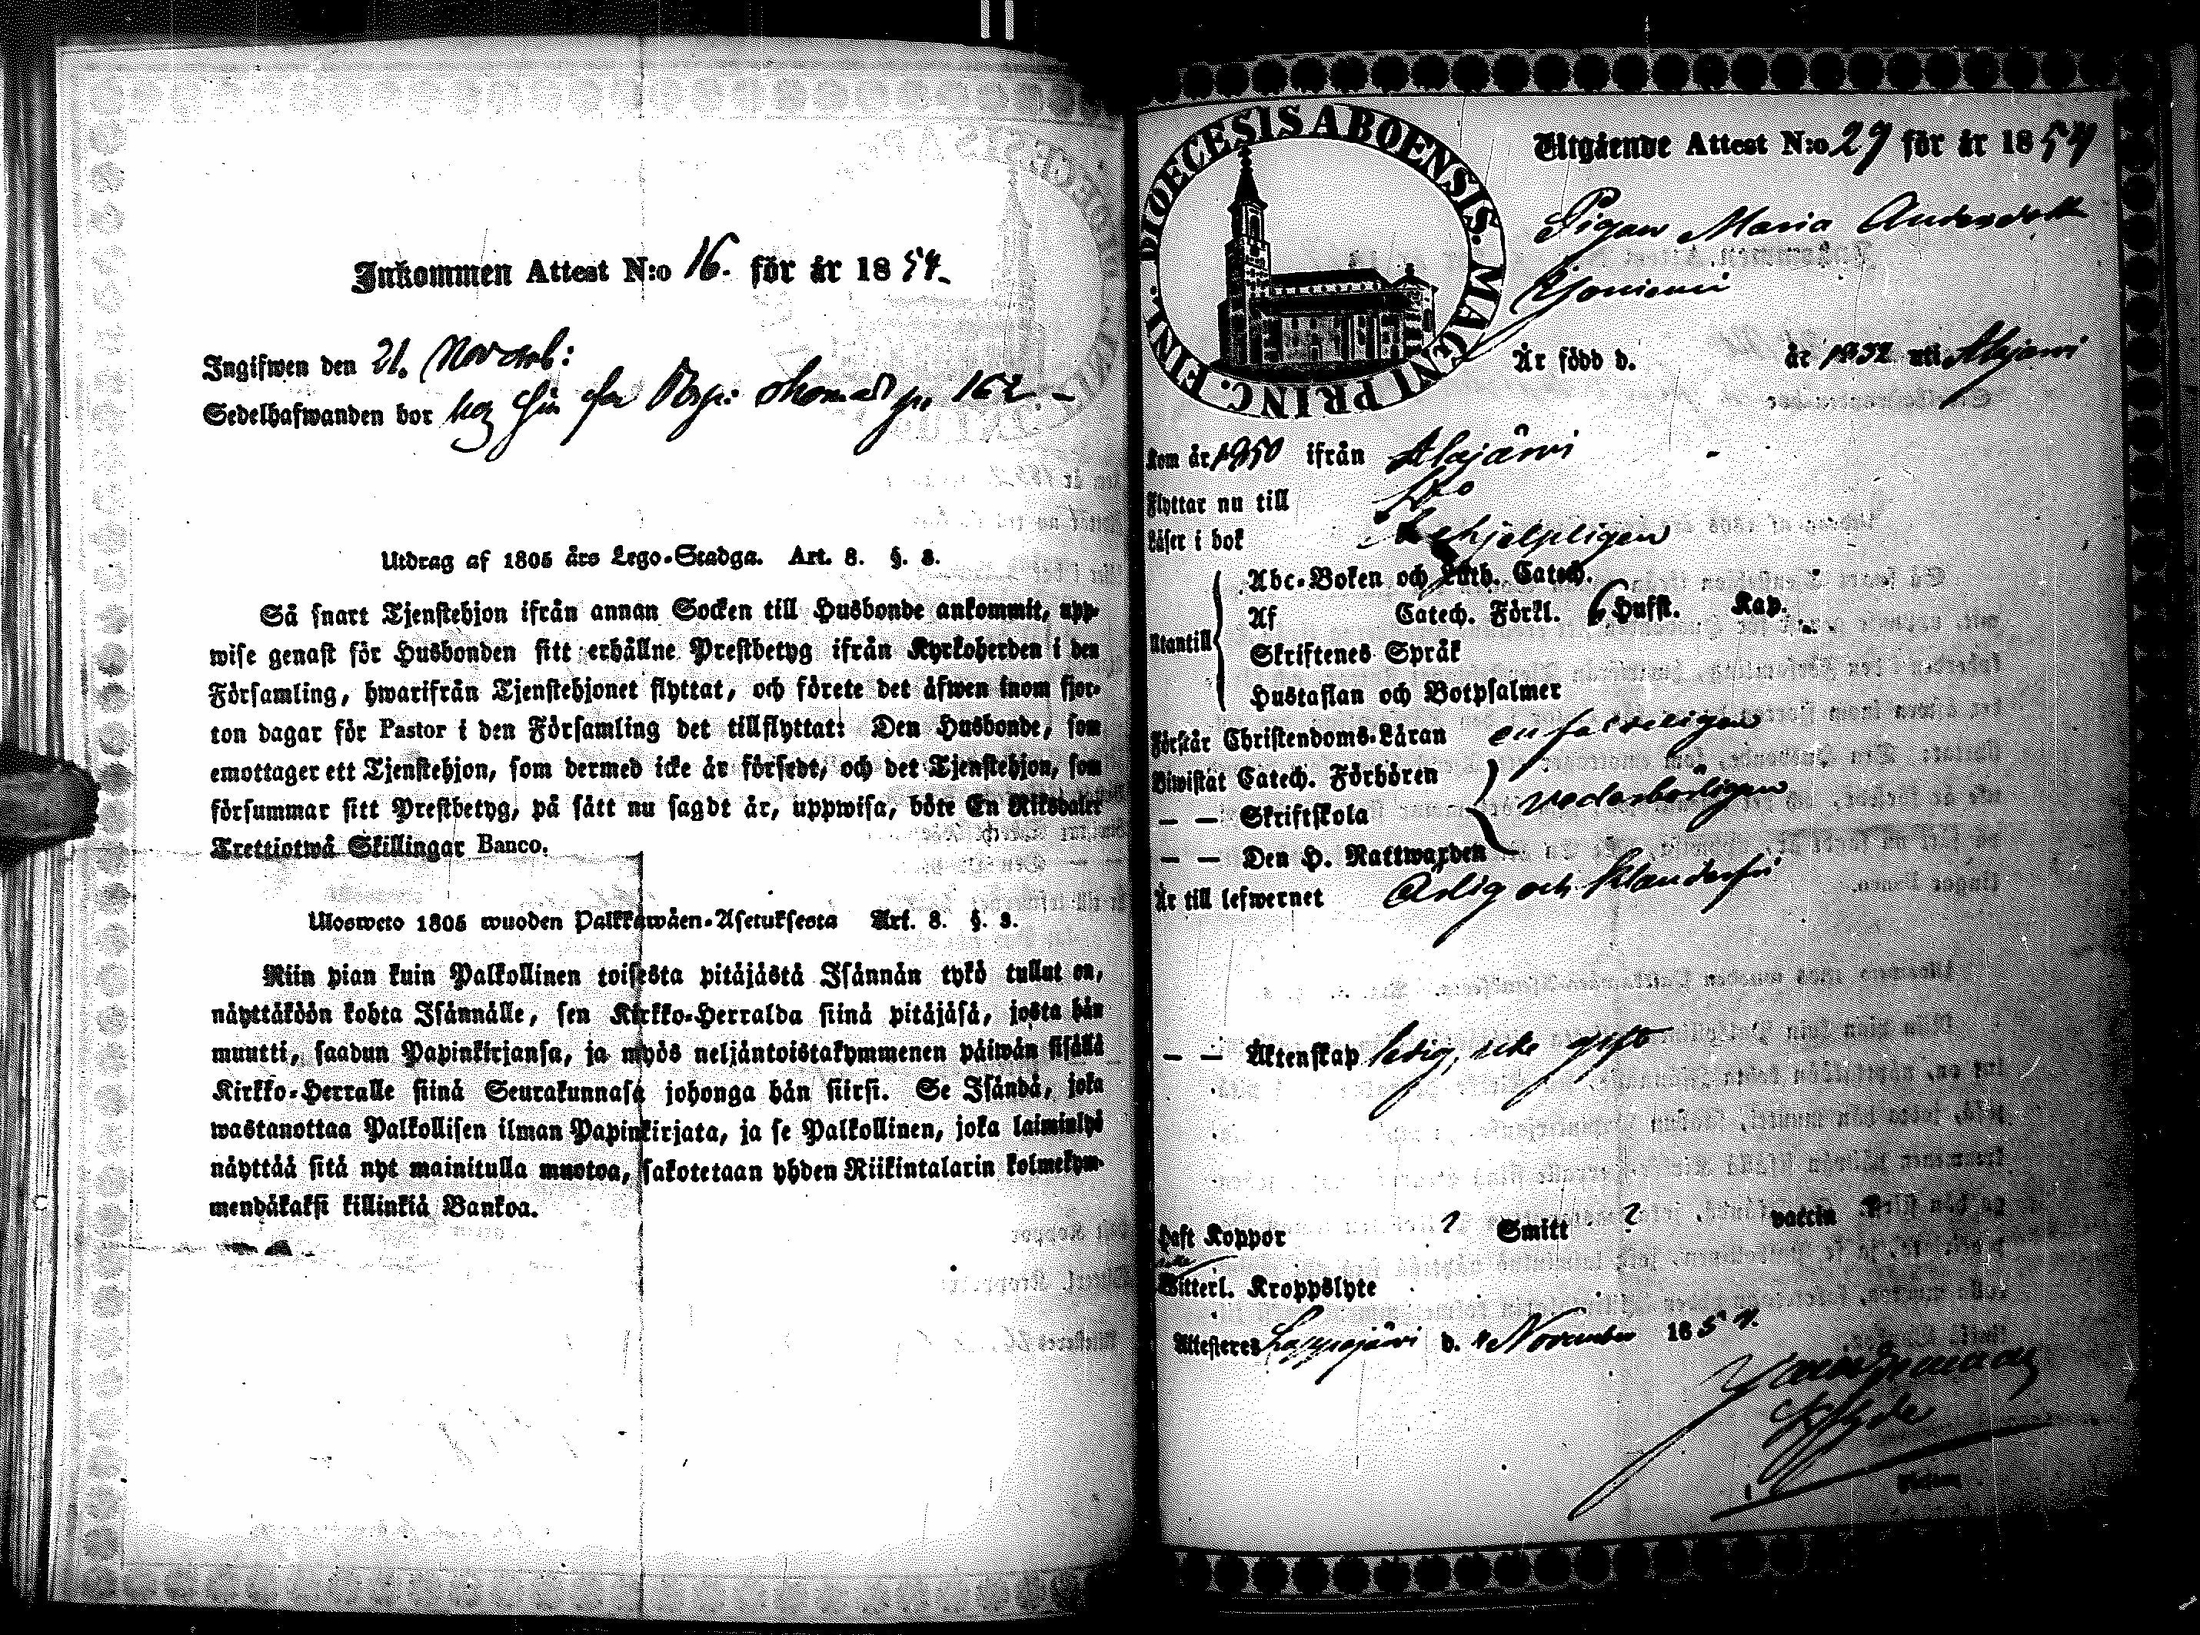 Inkommen Attest N:o 16. för år 1854.
Ingifwen den 21. Novemb:
Sedelhafwanden bor hos sin far
162
Utdrag af 1805 års Lego-Stadga. Art. 8. §. 3.
Så snart Tjenstehjon ifrån annan Socken till Husbonde ankommit, upp-
wise genast för Husbonden sitt erhållne Prestbetyg ifrån Kyrkoherden i den
Församling, hwarifrån Tjenstehjonet flyttat, och förete det äfwen inom fjor-
ton dagar för Pastor i den Församling det tillflyttat: Den Husbonde, som
emottager ett Tjenstehjon, som dermed icke är försedt, och det Tjenstehjon, som
försummar sitt Prestbetyg, på sätt nu sagdt är, uppwisa, böte En Riksdaler
Trettiotwå Skillingar Banco.
Ulosweto 1805 wuoden Palkkawäen-Asetuksesta Art. 8. §. 3.
Niin pian kuin Palkollinen toisesta pitäjästä Isännän tykö tullut on,
näyttäköön kohta Isännälle, sen Kirkko-Herralda siinä pitäjäsä, josta hän
muutti, saadun Papinkirjansa, ja myös neljäntoistakymmenen päiwän sisällä
Kirkko-Herralle siinä Seurakunnasa johonga hän siirsi. Se Isändä, joka
wastanottaa Palkollisen ilman Papinkirjata, ja se Palkollinen, joka laiminlyö
näyttää sitä nyt mainitulla muotoa, sakotetaan yhden Riikintalarin kolmekym-
mendäkaksi killinkiä Bankoa.
DIOECESIS ABOENSIS. MAGNI PRINC. FINL.
Utgående Attest N:o 29 för år 1854
Pigan Maria Andersdotter
Är född d. år 1832 uti Alajärvi
Kom år 1850 ifrån Alajärvi
Flyttar nu till
Läser i bok behjelpligen
Utantill
Abc-Boken och Luth. Catech.
Af Catech. Förkl. 6 Hufst. Kap.
Skriftenes Språk
Hustaflan och Botpsalmer
Förstår Christendoms-Läran enfaldeligen
Biwistat Catech. Förhören
— — Skriftskola vederbörligen
— — Den H. Nattwarden
Är till lefwernet Ärlig och klanderfri
— — Äktenskap ledig, icke gift
Haft Koppor ? Smitt ? vaccin
Witterl. Kroppslyte
Attesteres Lappajärvi d. 4 November 1854.